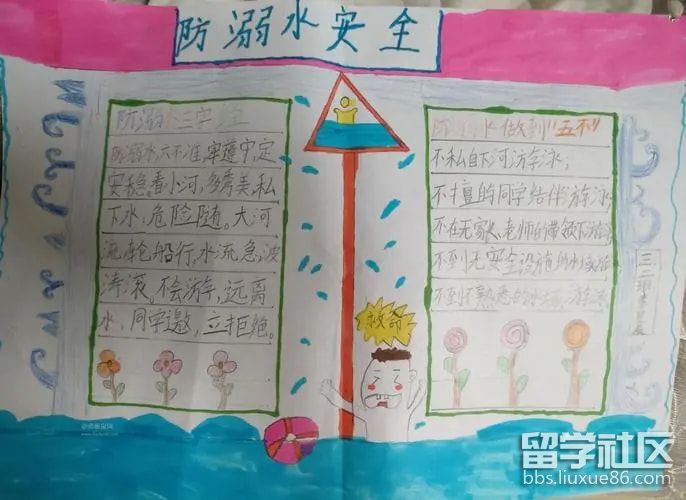 防溺水安全
防溺水三字经
防溺水,六不准,牢遵守,定
安稳。看小河,多秀美,私
下水,危险随。大河
流,轮船行,水流急,波
涛滚。不会游,远离
水,同学邀,立拒绝。
防溺水做到"五不"
不私自下河游泳;
不擅自的同学结伴游泳
不在无家人老师的带领下游泳
不到无安全设施的水域游泳
不到不熟悉的水域游泳
救命
三二班
留学社区
bbs.liuxue86.com